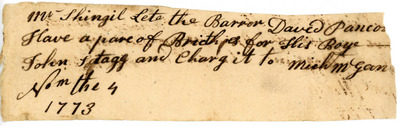 Mr Shingil Lete the Barror Daved Panco
Have a pare of Brithjes for His Boye
John Stagg and Charg it to Mich McGan
Nom the 4
1773